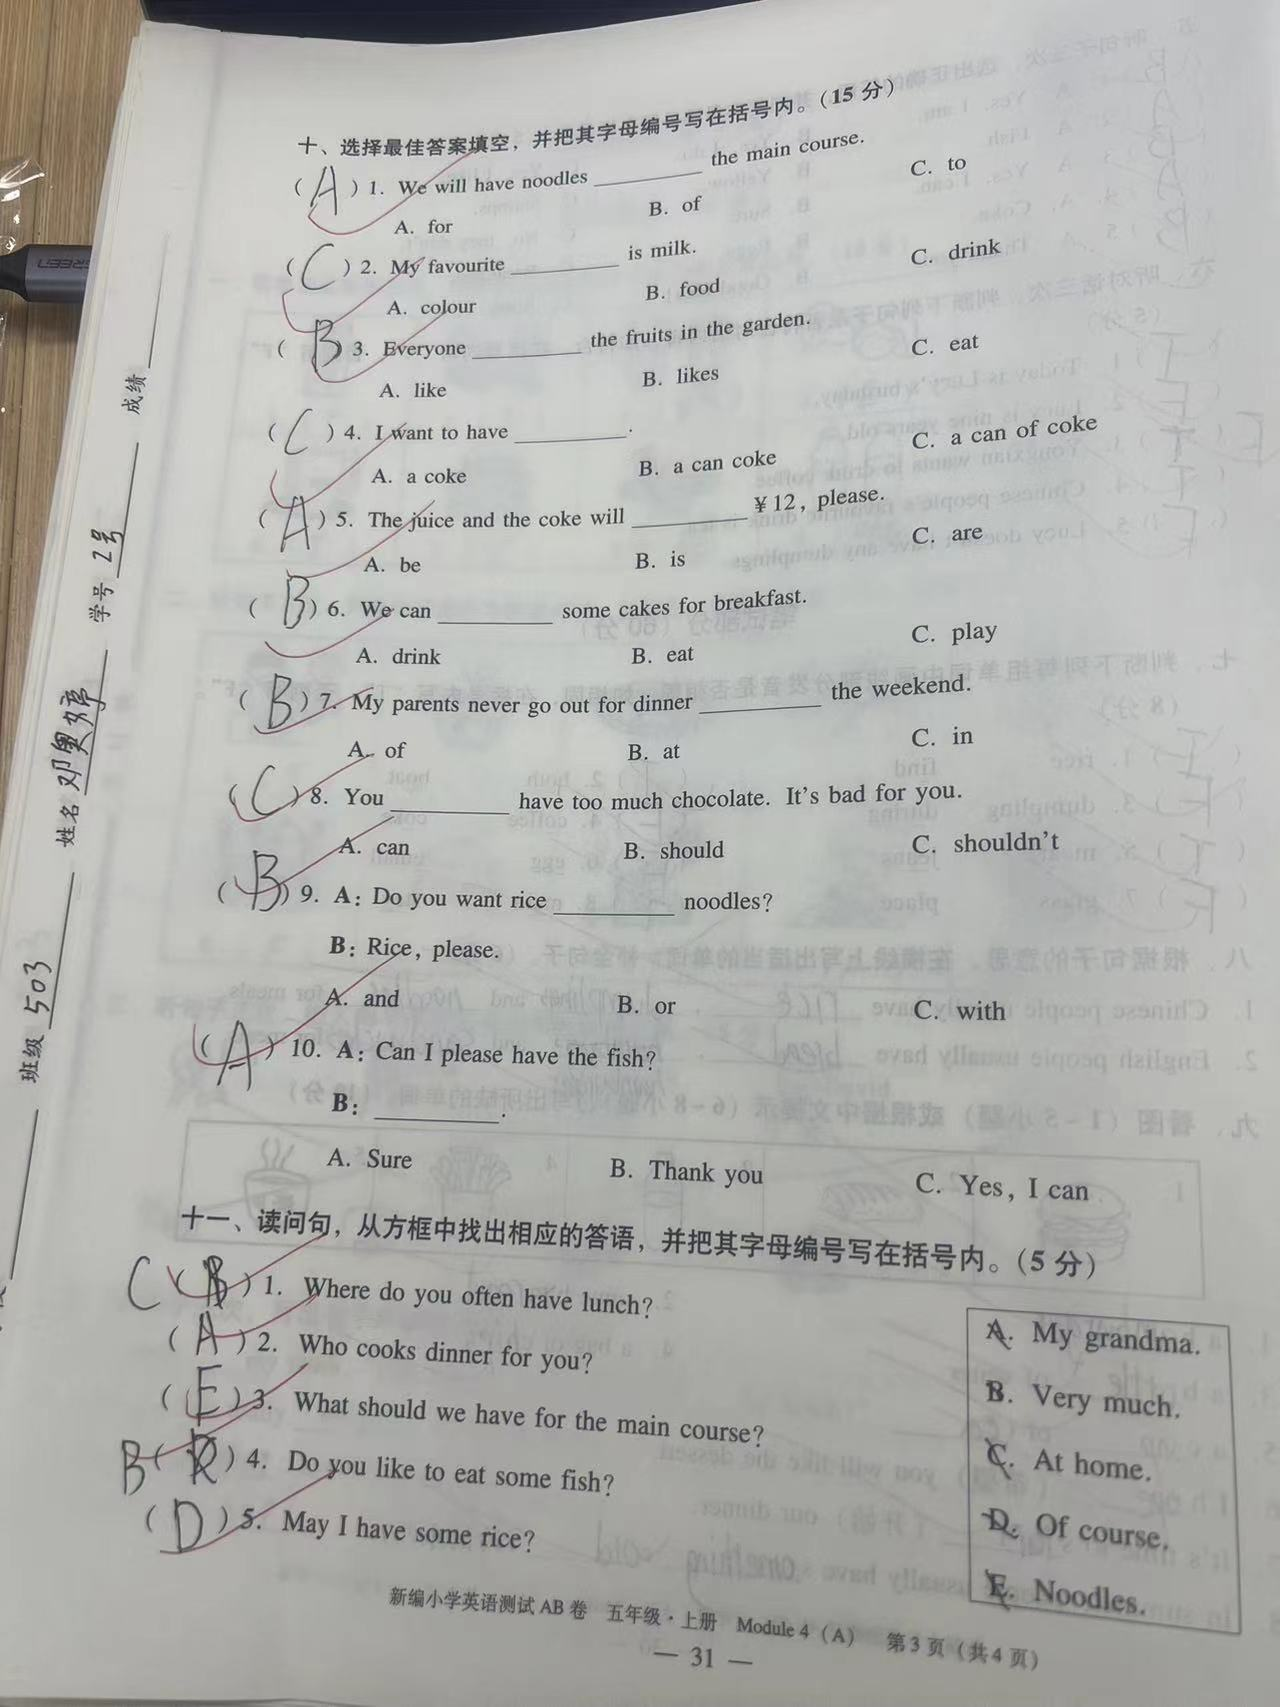 十、选择最佳答案填空，并把其字母编号写在括号内。（15 分）
（ A ）1. We will have noodles ________ the main course.
A. for B. of C. to
（ C ）2. My favourite ________ is milk.
A. colour B. food C. drink
（ B ）3. Everyone ________ the fruits in the garden.
A. like B. likes C. eat
（ C ）4. I want to have ________.
A. a coke B. a can coke C. a can of coke
（ A ）5. The juice and the coke will ________ ￥12, please.
A. be B. is C. are
（ B ）6. We can ________ some cakes for breakfast.
A. drink B. eat C. play
（ B ）7. My parents never go out for dinner ________ the weekend.
A. of B. at C. in
（ C ）8. You ________ have too much chocolate. It's bad for you.
A. can B. should C. shouldn't
（ B ）9. A: Do you want rice ________ noodles?
B: Rice, please.
A. and B. or C. with
（ A ）10. A: Can I please have the fish?
B: ________.
A. Sure B. Thank you C. Yes, I can
十一、读问句，从方框中找出相应的答语，并把其字母编号写在括号内。（5 分）
C（ B ）1. Where do you often have lunch?
（ A ）2. Who cooks dinner for you?
（ E ）3. What should we have for the main course?
B（ ）4. Do you like to eat some fish?
（ D ）5. May I have some rice?
A. My grandma.
B. Very much.
C. At home.
D. Of course.
E. Noodles.
新编小学英语测试 AB 卷 五年级·上册 Module 4（A） 第 3 页（共 4 页）
— 31 —
班级 503 姓名 邓奥婷 学号 2号 成绩